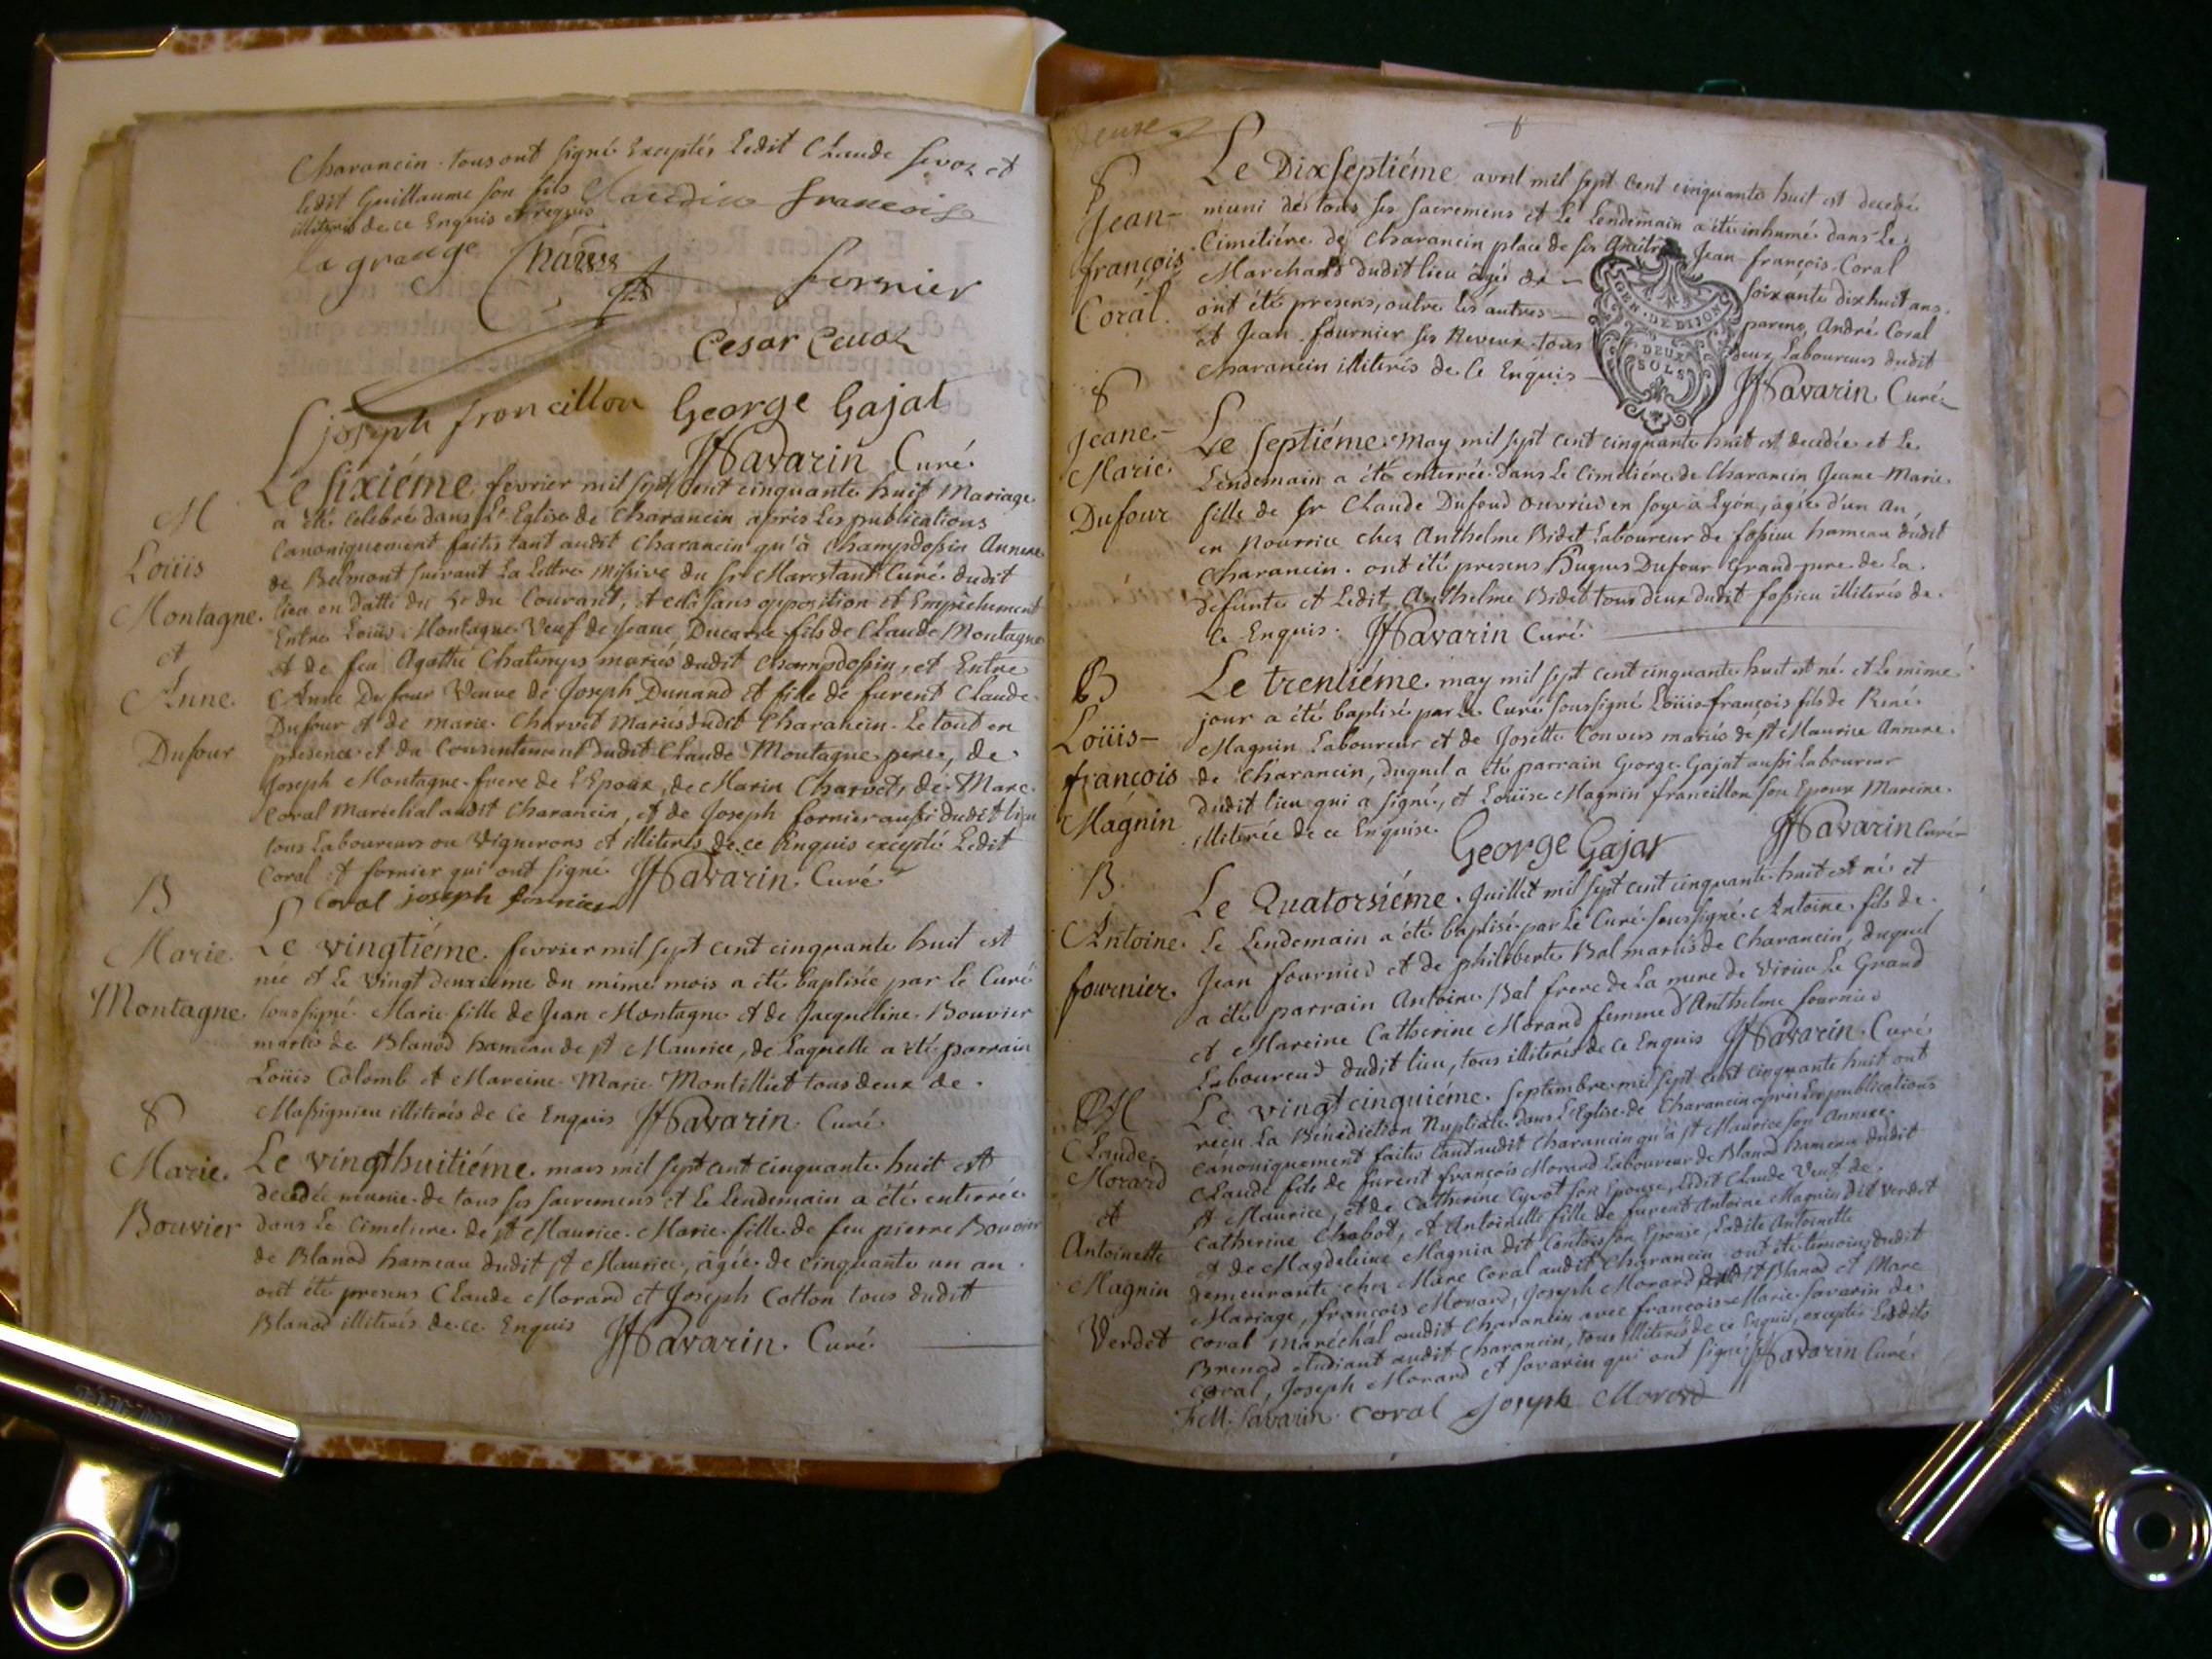 Charancin. tous ont signé Exceptés Ledit Claude sevoz et
Ledit Guillaume son fils
illiterés de ce Enquis et requis
Claudine francoise
la grange
fornier
Cesar Cevoz
joseph francillon George Gajat
Savarin Curé.
M
Loüis
Montagne.
et
Anne.
Dufour
Le sixiéme. fevrier mil sept Cent cinquante huit Mariage
a été Celebré dans L'Eglise de Charancin après Les publications
Canoniquement faites tant audit Charancin qu'à Champdossin Annexe
de Belmont suivant La Lettre missive du sr Marestant Curé dudit
lieu en datte du 5e du Courant, et cela sans opposition et Empêchement
Entre Loüis Montagne Veuf de Jeane Ducarre fils de Claude Montagne
et de feu Agathe mariés dudit Champdossin, et Entre
Anne Dufour Veuve de Joseph Dunand et fille de furent Claude
Dufour et de marie. Charvet Mariés dudit Charancin. Le tout en
présence et du Consentement dudit Claude Montagne pere, de
Joseph Montagne frere de L'Epoux, de Marin Charvet, de Marc
Coral Maréchal audit Charancin, et de Joseph fornier aussi dudit lieu
tous Laboureurs ou Vignerons et illiterés de ce Enquis excepté Ledit
Coral et fornier qui ont signé Savarin. Curé
Coral joseph fornier
B
Marie.
Montagne.
Le vingtiéme. fevrier mil sept cent cinquante huit est
née et Le Vingt deuxiéme du même mois a été baptisée par Le Curé
soussigné Marie fille de Jean Montagne et de Jacqueline. Bouvier
mariés de Blanod hameau de st Maurice, de Laquelle a été parrain
Loüis Colomb et Mareine Marie Montilliet tous deux de.
Massignieu illiterés de Ce Enquis Savarin. Curé
S
Marie.
Bouvier
Le vingthuitiéme. mars mil sept cent cinquante. huit est
decedée munie de tous ses sacremens et Le Lendemain a été enterrée
dans Le Cimetiere de st Maurice. Marie. fille de feu pierre Bouvier
de Blanod hameau dudit st Maurice, âgée de cinquante un an.
ont été presens Claude Morard et Joseph Cotton tous dudit
Blanod illiterés de ce. Enquis Savarin. Curé
deuxe
S
Jean-
françois
Coral.
Le Dixseptiéme avril mil sept cent cinquante huit est decedé
muni de tous ses sacremens et Le Lendemain a été inhumé dans Le
Cimetiére de Charancin place de ses Jean-françois Coral
Marchand dudit lieu âgé de — soixante dix huit ans.
ont été presens, outre Les autres — parens, André Coral
et Jean fournier ses Neveux tous deux Laboureurs dudit
Charancin illiterés de Ce Enquis — Savarin. Curé
GEN. DE DIJON
DEUX
SOLS
S
Jeane-
Marie
Dufour
Le septiéme. May mil sept cent cinquante huit est decedée et Le
Lendemain a été enterrée dans Le Cimétiére de Charancin Jeane-Marie
fille de sr Claude Dufour ouvrier en soye à Lyon, agée d'un an,
en nourrice chez Anthelme Bidet Laboureur de fossieu hameau dudit
Charancin. ont été presens Hugues Dufour Grand-pere de La.
défunte et Ledit Anthelme Bidet tous deux dudit fossieu illiterés de.
Ce Enquis. Savarin Curé.
B
Loüis-
françois
Magnin
Le trentiéme. may mil sept cent cinquante huit est né et Le même
jour a été baptisé par Le Curé soussigné Loüis-françois fils de René
Magnin Laboureur et de Josette Convers mariés de st Maurice Annexe.
de Charancin, duquel a été parrain George Gajat aussi Laboureur
dudit lieu qui a signé, et Loüise Magnin francillon son Epouse Mareine.
illiterée de ce Enquise.
George Gajat Savarin Curé
B.
Antoine.
fournier.
Le Quatorsiéme. Juillet mil sept cent cinquante huit est né et
Le Lendemain a été baptisé par Le Curé soussigné Antoine fils de
Jean fournier et de philiberte Bal mariés de Charancin, duquel
a été parrain Antoine Bal frere de La mere de Virieu Le Grand
et Mareine Catherine Morand femme d'Anthelme fournier
Laboureur dudit lieu, tous illiterés de Ce Enquis Savarin. Curé
M
Claude.
Morard
et
Antoinette
Magnin
Verdet
Le vingtcinquiéme. septembre mil sept cent cinquante huit ont
reçu La Bénédiction Nuptiale dans L'Eglise de Charancin après Les publications
canoniquement faites tant audit Charancin qu'à st Maurice son Annexe.
Claude fils de furent françois Morard Laboureur de Blanod hameau dudit
st Maurice, et de Catherine son Epouse, Ledit Claude Veuf de.
Catherine Chabot, et Antoinette fille de furent Antoine Magnin dit Verdet
et de Magdeleine Magnin dit son Epouse, Ladite Antoinette
demeurante chez Marc Coral audit Charancin ont été temoins dudit
Mariage, françois Morard, Joseph Morard Blanod et Marc
Coral Maréchal audit Charancin avec françois-Marie Savarin de
Brenod étudiant audit Charancin, tous illiterés de ce Enquis, exceptés Lesdits
Coral, Joseph Morard et Savarin qui ont signé Savarin Curé
F.M. Savarin. Coral Joseph Morard